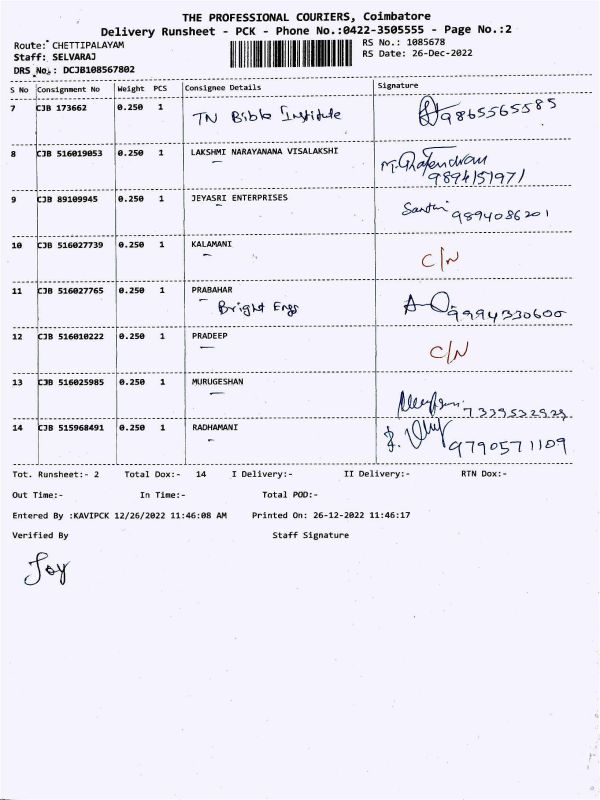 THE PROFESSIONAL COURIERS, Coimbatore
Delivery Runsheet - PCK - Phone No.:0422-3505555 - Page No.:2
Route: CHETTIPALAYAM
RS No.: 1085678
Staff: SELVARAJ
RS Date: 26-Dec-2022
DRS No.: DCJB108567802
S No Consignment No Weight PCS Consignee Details Signature
7 CJB 173662 0.250 1 TN Bible Institute 9865565585
8 CJB 516019053 0.250 1 LAKSHMI NARAYANANA VISALAKSHI
9894151971
9 CJB 89109945 0.250 1 JEYASRI ENTERPRISES
Santhi 9894086201
10 CJB 516027739 0.250 1 KALAMANI
C/N
11 CJB 516027765 0.250 1 PRABAHAR
Bright Engg 9994330600
12 CJB 516010222 0.250 1 PRADEEP
C/N
13 CJB 516025985 0.250 1 MURUGESHAN
14 CJB 515968491 0.250 1 RADHAMANI
9790571109
Tot. Runsheet:- 2 Total Dox:- 14 I Delivery:- II Delivery:- RTN Dox:-
Out Time:- In Time:- Total POD:-
Entered By :KAVIPCK 12/26/2022 11:46:08 AM Printed On: 26-12-2022 11:46:17
Verified By Staff Signature
Joy